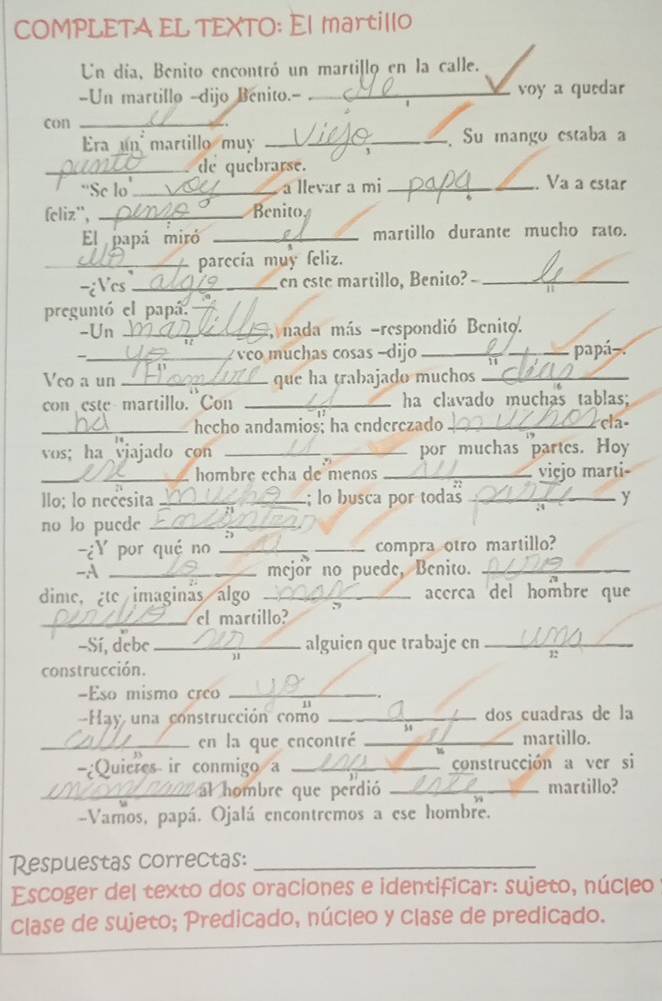 COMPLETA EL TEXTO: El martillo
Un día, Benito encontró un martillo en la calle.
-Un martillo -dijo Benito.- Me voy a quedar
con el.
Era un martillo muy Viejo. Su mango estaba a
punto de quebrarse.
"Se lo voy a llevar a mi papa. Va a estar
feliz", penso Benito.
El papá miró el martillo durante mucho rato.
ello parecía muy feliz.
-¿Ves algio en este martillo, Benito? - le
preguntó el papá.
-Un martillo, nada más -respondió Benito.
- yo veo muchas cosas -dijo el papá-.
Veo a un Hombre que ha trabajado muchos dias
con este martillo. Con el ha clavado muchas tablas;
ha hecho andamios; ha enderezado muchos cla-
vos; ha viajado con el por muchas partes. Hoy
ese hombre echa de menos su viejo marti-
llo; lo necesita mucho; lo busca por todas parte y
no lo puede Encontrar
-¿Y por qué no compra otro martillo?
-A lo mejor no puede, Benito. pero
dime, ¿te imaginas algo mas acerca del hombre que
perdio el martillo?
-Sí, debe ser alguien que trabaje en una
construcción.
-Eso mismo creo yo.
-Hay una construcción como a dos cuadras de la
calle en la que encontré el martillo.
-¿Quieres ir conmigo a esa construcción a ver si
encontramos al hombre que perdió este martillo?
-Vamos, papá. Ojalá encontremos a ese hombre.
Respuestas correctas:
Escoger del texto dos oraciones e identificar: sujeto, núcleo
clase de sujeto; Predicado, núcleo y clase de predicado.